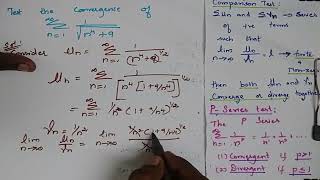 Test the Convergence of
∑_{n=1}^{∞} 1/√(n⁴+9)
Sol:
Consider Un = ∑_{n=1}^{∞} 1/(n⁴+9)^{1/2}
Un = ∑_{n=1}^{∞} 1/[n⁴[1+9/n⁴]]^{1/2}
= ∑_{n=1}^{∞} 1/n² (1+9/n⁴)^{1/2}
Vn = 1/n²
lim_{n→∞} Un/Vn = lim_{n→∞}
Comparison Test:
∑Un and ∑Vn → Series
of +ve terms
such that
lim_{n→∞} Un/Vn = l
finite
&
Non-zero
then both Un and
Converge or diverge
P-Series test:
The P Series
∑_{n=1}^{∞} 1/n^p =
(1) Convergent if p>1
(2) Divergent if p≤1